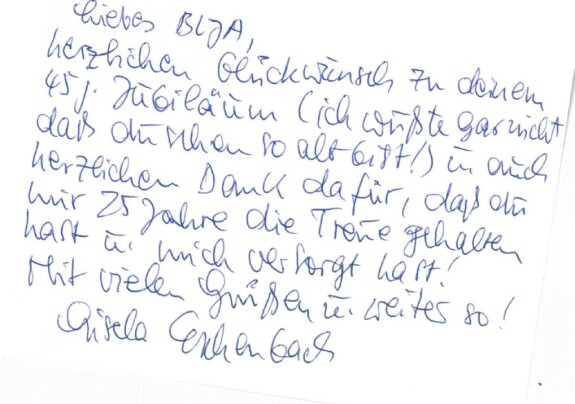 Liebes BLJA,
herzlichen Glückwunsch zu deinem
45 j. Jubiläum (ich wußte gar nicht
daß du schon so alt bist!) u. auch
herzlichen Dank dafür, daß du
mir 25 Jahre die Treue gehalten
hast u. mich versorgt hast!
Mit vielen Grüßen u. weiter so!
Gisela Eschenbach